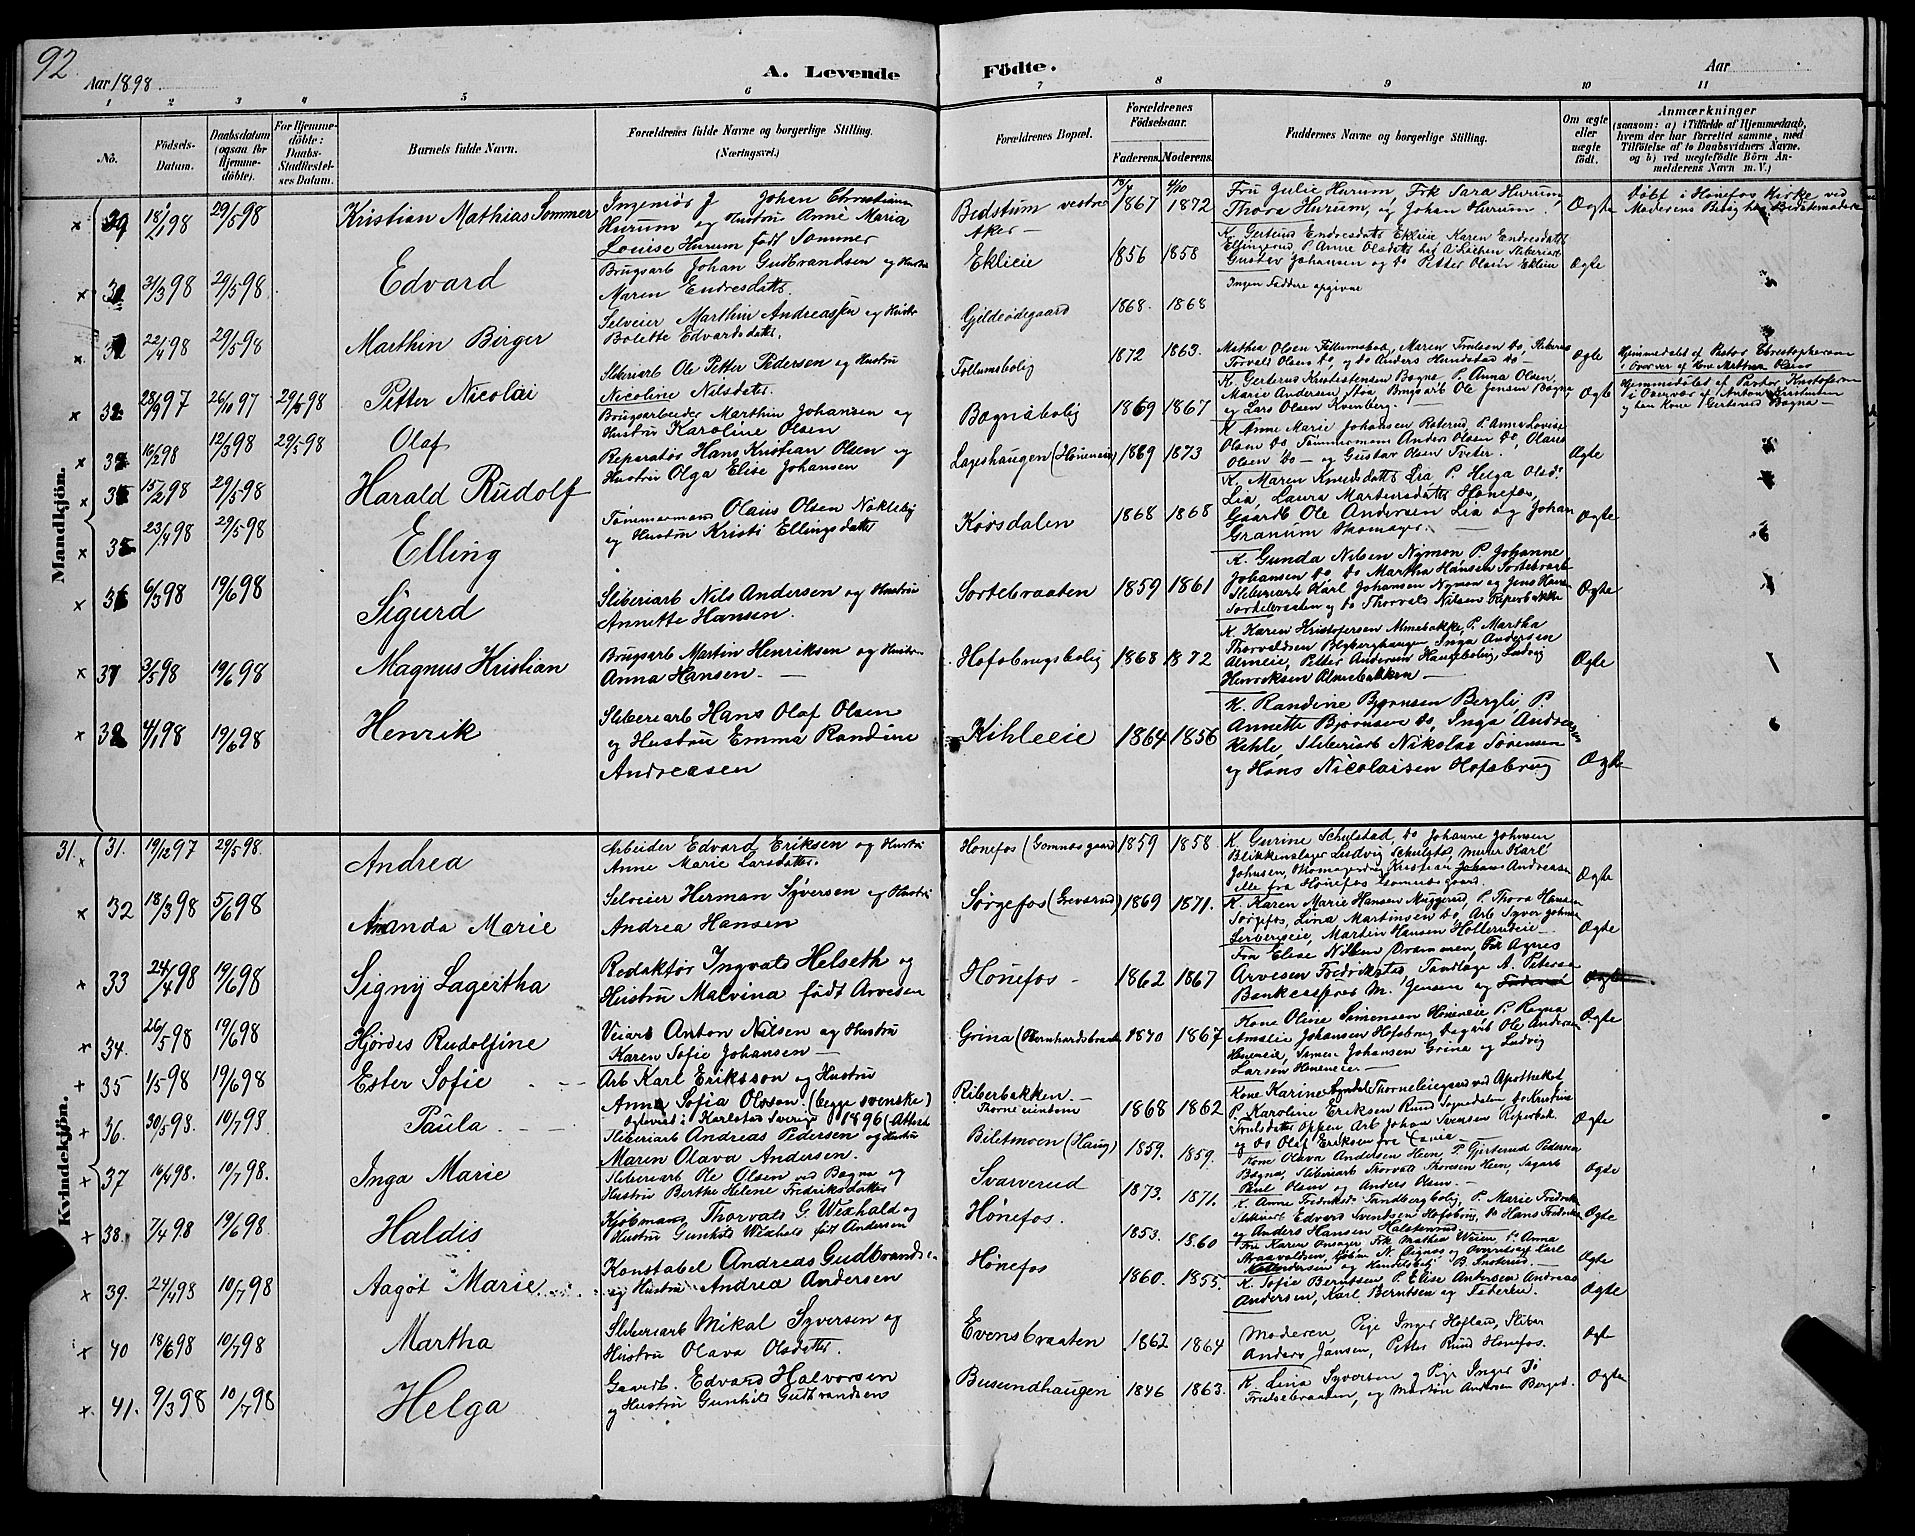 92
Aar 1898
A. Levende
Födte.
Aar
1 2 3 4 5 6 7 8 9 10 11
No.
Födsels-Datum.
Daabsdatum (ogsaa for Hjemme-döbte).
For Hjemme-döbte: Daabs-Stadfæstel-ses Datum.
Barnets fulde Navn.
Forældrenes fulde Navne og borgerlige Stilling.
(Næringsvei.)
Forældrenes Bopæl.
Forældrenes Födselsaar.
Faderens.
Moderens.
Faddernes Navne og borgerlige Stilling.
Om ægte eller uægte födt.
Anmærkninger
(saasom: a) i Tilfælde af Hjemmedaab,
hvem der har forrettet samme, med
Tilföielse af to Daabsvidners Navne.
og b) ved uægtefödte Börn An-
melderens Navn m. V.)
Mandkjön.
29 18/1 98 29/5 98 Kristian Mathias Sommer
Ingeniør J Johan Christian
Hurum og Hustru Anne Maria
Louise Hurum født Sommer
Bedstum vestre
Aker —
1867 1872
Fru Julie Hurum, Frk Sara Hurum,
Thora Hurum, og Johan Hurum.
Ægte
Døbt i Hønefos Kirke ved
Moderens Besøg hos Bedstemoder
31/3 98 29/5 98 Edvard
Brugsarb Johan Gudbrandsen og Hustru
Maren Endresdatter
Eklieie 1856 1858
K. Gertrud Endresdatter Eklieie Karen Endresdatter
Gustav Johansen og do Petter Olsen Eklieie
Ægte
22/4 98 29/5 98 Marthin Birger
Selveier Marthin Andreassen og Hustru
Bolette Edvardsdatter
Gjildeødegaard 1868. 1868
Ingen Faddere opgivne
28/9 97 26/10 97 29/5 98 Petter Nicolai
Sliberiarb Ole Petter Pedersen og Hustru
Nicoline Nilsdatter
Follumsbolig 1872 1863.
Mathea Olsen Follumsbol, Maren Trulsen do,
Torvald Olsen do, og do Anders Hundstad do —
Ægte
Hjemmedøbt af Pastor Christophersen
16/2 98 12/3 98 29/5 98 Olaf
Brugsarbeider Marthin Johansen og
Hustru Karoline Olsen
Bognabolig 1869 1867
Marie Andersen, Brugsarb Ole Jensen Bogna
og Lars Olsen Kvernberg. —
Ægte
Hjemmedøbt af Pastor Kristofersen
i Overvær af Anton Kristensen
og han Kone Gertrud Bogna —
15/2 98 29/5 98 Harald Rudolf
Reparatør Hans Kristian Olsen og
Hustru Olga Elise Johansen
Lageshaugen (Hønenseie) 1869 1873
K Anne Marie Johansen P. Anna Lovise
Olsen do Tømmermand Anders Olsen do, Olaus
Olsen do — og Gustav Olsen Tveter.
Ægte
23/4 98 29/5 98 Elling
Tømmermand Olaus Olsen Nøkleby
og Hustru Kristi Ellingsdatter
Korsdalen 1868 1868
K. Maren Knudsdatter Lia P. Helga Olsd.
Lia, Laura Martinsdatter Hønefos,
Gaardb Ole Andersen Lia og Johan
Granum Skomager. —
Ægte
6/3 98 19/6 98 Sigurd
Sliberiarb Nils Andersen og Hustru
Annette Hansen.
Sortebraaten 1859 1861
K. Gunda Nilsen Nymon P. Johanne
Johansen do do Martha Hansen Sortebraat
Sliberiarb Karl Johansen Nymon og Jens Hansen
Sortebraaten og do Thorvald Nilsen Riperbakke
Ægte
37 3/5 98 19/6 98 Magnus Kristian
Brugsarb Martin Henriksen og Hustru
Anna Hansen. —
Hofsbrugsbolig 1868 1872
K. Karen Kristofersen Almebakke, P. Martha
Thorvaldsen Inga Andersen
Almeie, Petter Andersen Haugsbolig, Ludvig
Henriksen Almebakken —
Ægte
38 4/1 98 19/6 98 Henrik
Sliberiarb Hans Olaf Olsen
og Hustru Emma Randine
Andreasen
Kihleeie 1864 1856
K. Randine Bjørnsen Bergli P.
Annette Bjørnsen do, Inga Andreasen
Kihle, Sliberiarb Nikolai Sørensen
og Hans Nicolaisen Hofsbrug
Ægte
Kvindekjön.
31. 31. 19/12 97 29/5 98. Andrea
Arbeider Edvard Eriksen og Hustru
Anne Marie Larsdatter.
Hønefos (Gomnæsgaard 1859 1858
K. Gurine Schulstad, do Johanne Johnsen
Blikkenslager Ludvig Schulstad, Murer Karl
Johnsen, Skomagersvend Kristian Andreasen
alle fra Hønefos Gomnæsgaard.
Ægte
32 18/3 98 5/6 98 Amanda Marie
Selveier Herman Syversen og Hustru
Andrea Hansen
Sørgefos (Grevsrud) 1869 1871.
K. Karen Marie Hansen Muggerud, P. Thora Hansen
Sørgefos, Lina Martinsen do, Arb Syver Johnsen
Martin Hansen Hollerudeie —
Ægte
33 24/4 98 19/6 98 Signy Lagertha
Redaktør Ingvald Helseth og
Hustru Malvina født Arvesen
Hønefos — 1862 1867
Fru Elise Nilsen Drammen, Frk Agnes
Arvesen Fredriksted, Tandlæge A. Petersen
Bankcasserer M. Jensen og Faderen
Ægte
34. 26/5 98 19/6 98 Hjørdis Rudolfine
Veiarb Anton Nilsen og Hustru
Karen Sofie Johansen —
Grina (Bernhardsbraaten 1870 1867
Kone Oline Simensen Hønseie P. Ragna
Amalie Johansen Hofsbrug Dagarb Ole Andersen
Hønseeie, Simen Johansen Grina og Ludvig
Larsen Hønseeier —
Ægte
35 1/5 98 19/6 98 Ester Sofie
Arb Karl Eriksson og Hustru
Anna Sofia Olsson. (begge svenske)
Viet i Karlstad Sverige 1896 (Attest
Riberbakken. —
Thorne eiendom
1868 1862
Kone Karine Lyndal Thorneleiegaard ved Apotheket
P. Karoline Eriksen Rund Sognedalen do Kristine
Trulsdatter Oppen Arb Johan Svensen Riperbak.
og do Olaf Eriksen fra
Ægte
36. 30/5 98. 10/7 98 Paula
Sliberiarb Andreas Pedersen og Hustru
Maren Olava Andersen.
Biletmoen (Haug) 1859. 1859.
Kone Olava Andersen Heen, P. Gjertrud Pedersen
Bogna, Sliberiarb Thorvald Thoresen Heen, Dagarb
Paul Olsen og Anders Olsen. —
Ægte
37 16/4 98. 10/7 98. Inga Marie
Sliberiarb Ole Olsen ved Bogna og
Hustru Berthe Helene Fredriksdatter
Svarverud 1873. 1871.
K. Anne Fredriksd. Sandbergbolig, P. Marie Fredriksen
Sliberiarb Edvard Svendsen Hofsbrug, do Hans Fredriksen
og Anders Hansen Halstenrud.
Ægte
38. 7/4 98 19/6 98. Haldis
Kjøbmand Thorvald G. Wixhald og
Hustru Gunhild Wixhald født Andersen
Hønefos. 1853. 1860
Fru Karen Onsager, Frk Mathea Weien, do Anna
Ægte
39. 24/4 98 10/7 98 Aagot Marie
Konstabel Andreas Gudbrandsen
og Hustru Andrea Andersen
Hønefos 1860. 1855.
K. Sofie Berntsen P. Elise Andersen Andreas
Andersen, Karl Berntsen og Faderen.
Ægte
40 18/6 98 10/7 98 Martha
Sliberiarb Mikal Syversen og
Hustru Olava Olsdatter.
Evensbraaten 1862 1864
Moderen, Pige Inger Hofland, Sliber
Anders Jansen, Petter Rund Hønefos.
Ægte
41. 9/3 98 10/7 98 Helga
Gaardb. Edvard Halvorsen
og Hustru Gunhild Gudbrandsen
Busundhaugen 1846 1863.
K. Lina Syversen og Pige Inger do
Trulsebraaten, og Martin Andersen Berget.
Ægte